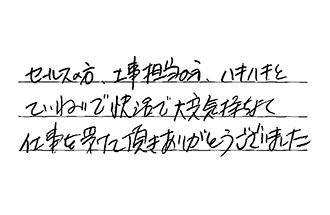 セールスの方、工事担当の方、ハキハキと
ていねいで快活で大変気持ちよくて
仕事を受けて頂きありがとうございました